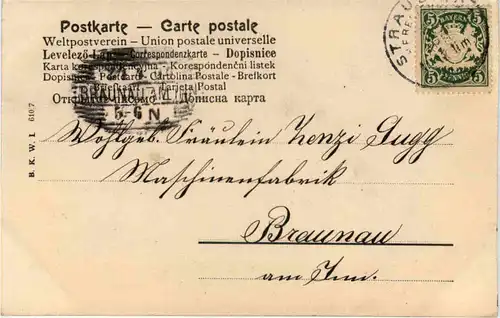 Postkarte — Carte postale
Weltpostverein – Union postale universelle
Levelező-Lap – Correspondenzkarte – Dopisnice
Karta korespondencyjna - Korespondenční listek
Dopisnica Postcard - Cartolina Postale - Brefkort
Briefkaart Tarjeta Postal
Открытое письмо – Дописна карта
STRAU
BAYERN
5 5
5 5
BRAUNAU
5-6 N
B. K. W. I. 610/7
Wohlgeb. Fräulein Zenzi Gugg
Maschinenfabrik
Braunau
am Inn.